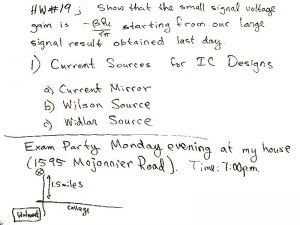 HW#19; Show that the small signal voltage
gain is -βRc/rπ starting from our large
signal result obtained last day.
1) Current Sources for IC Designs
a) Current Mirror
b) Wilson Source
c) Widlar Source
Exam Party Monday evening at my house
(1595 Mojonnier Road). Time: 7:00pm
1.5 miles
college
Walmart